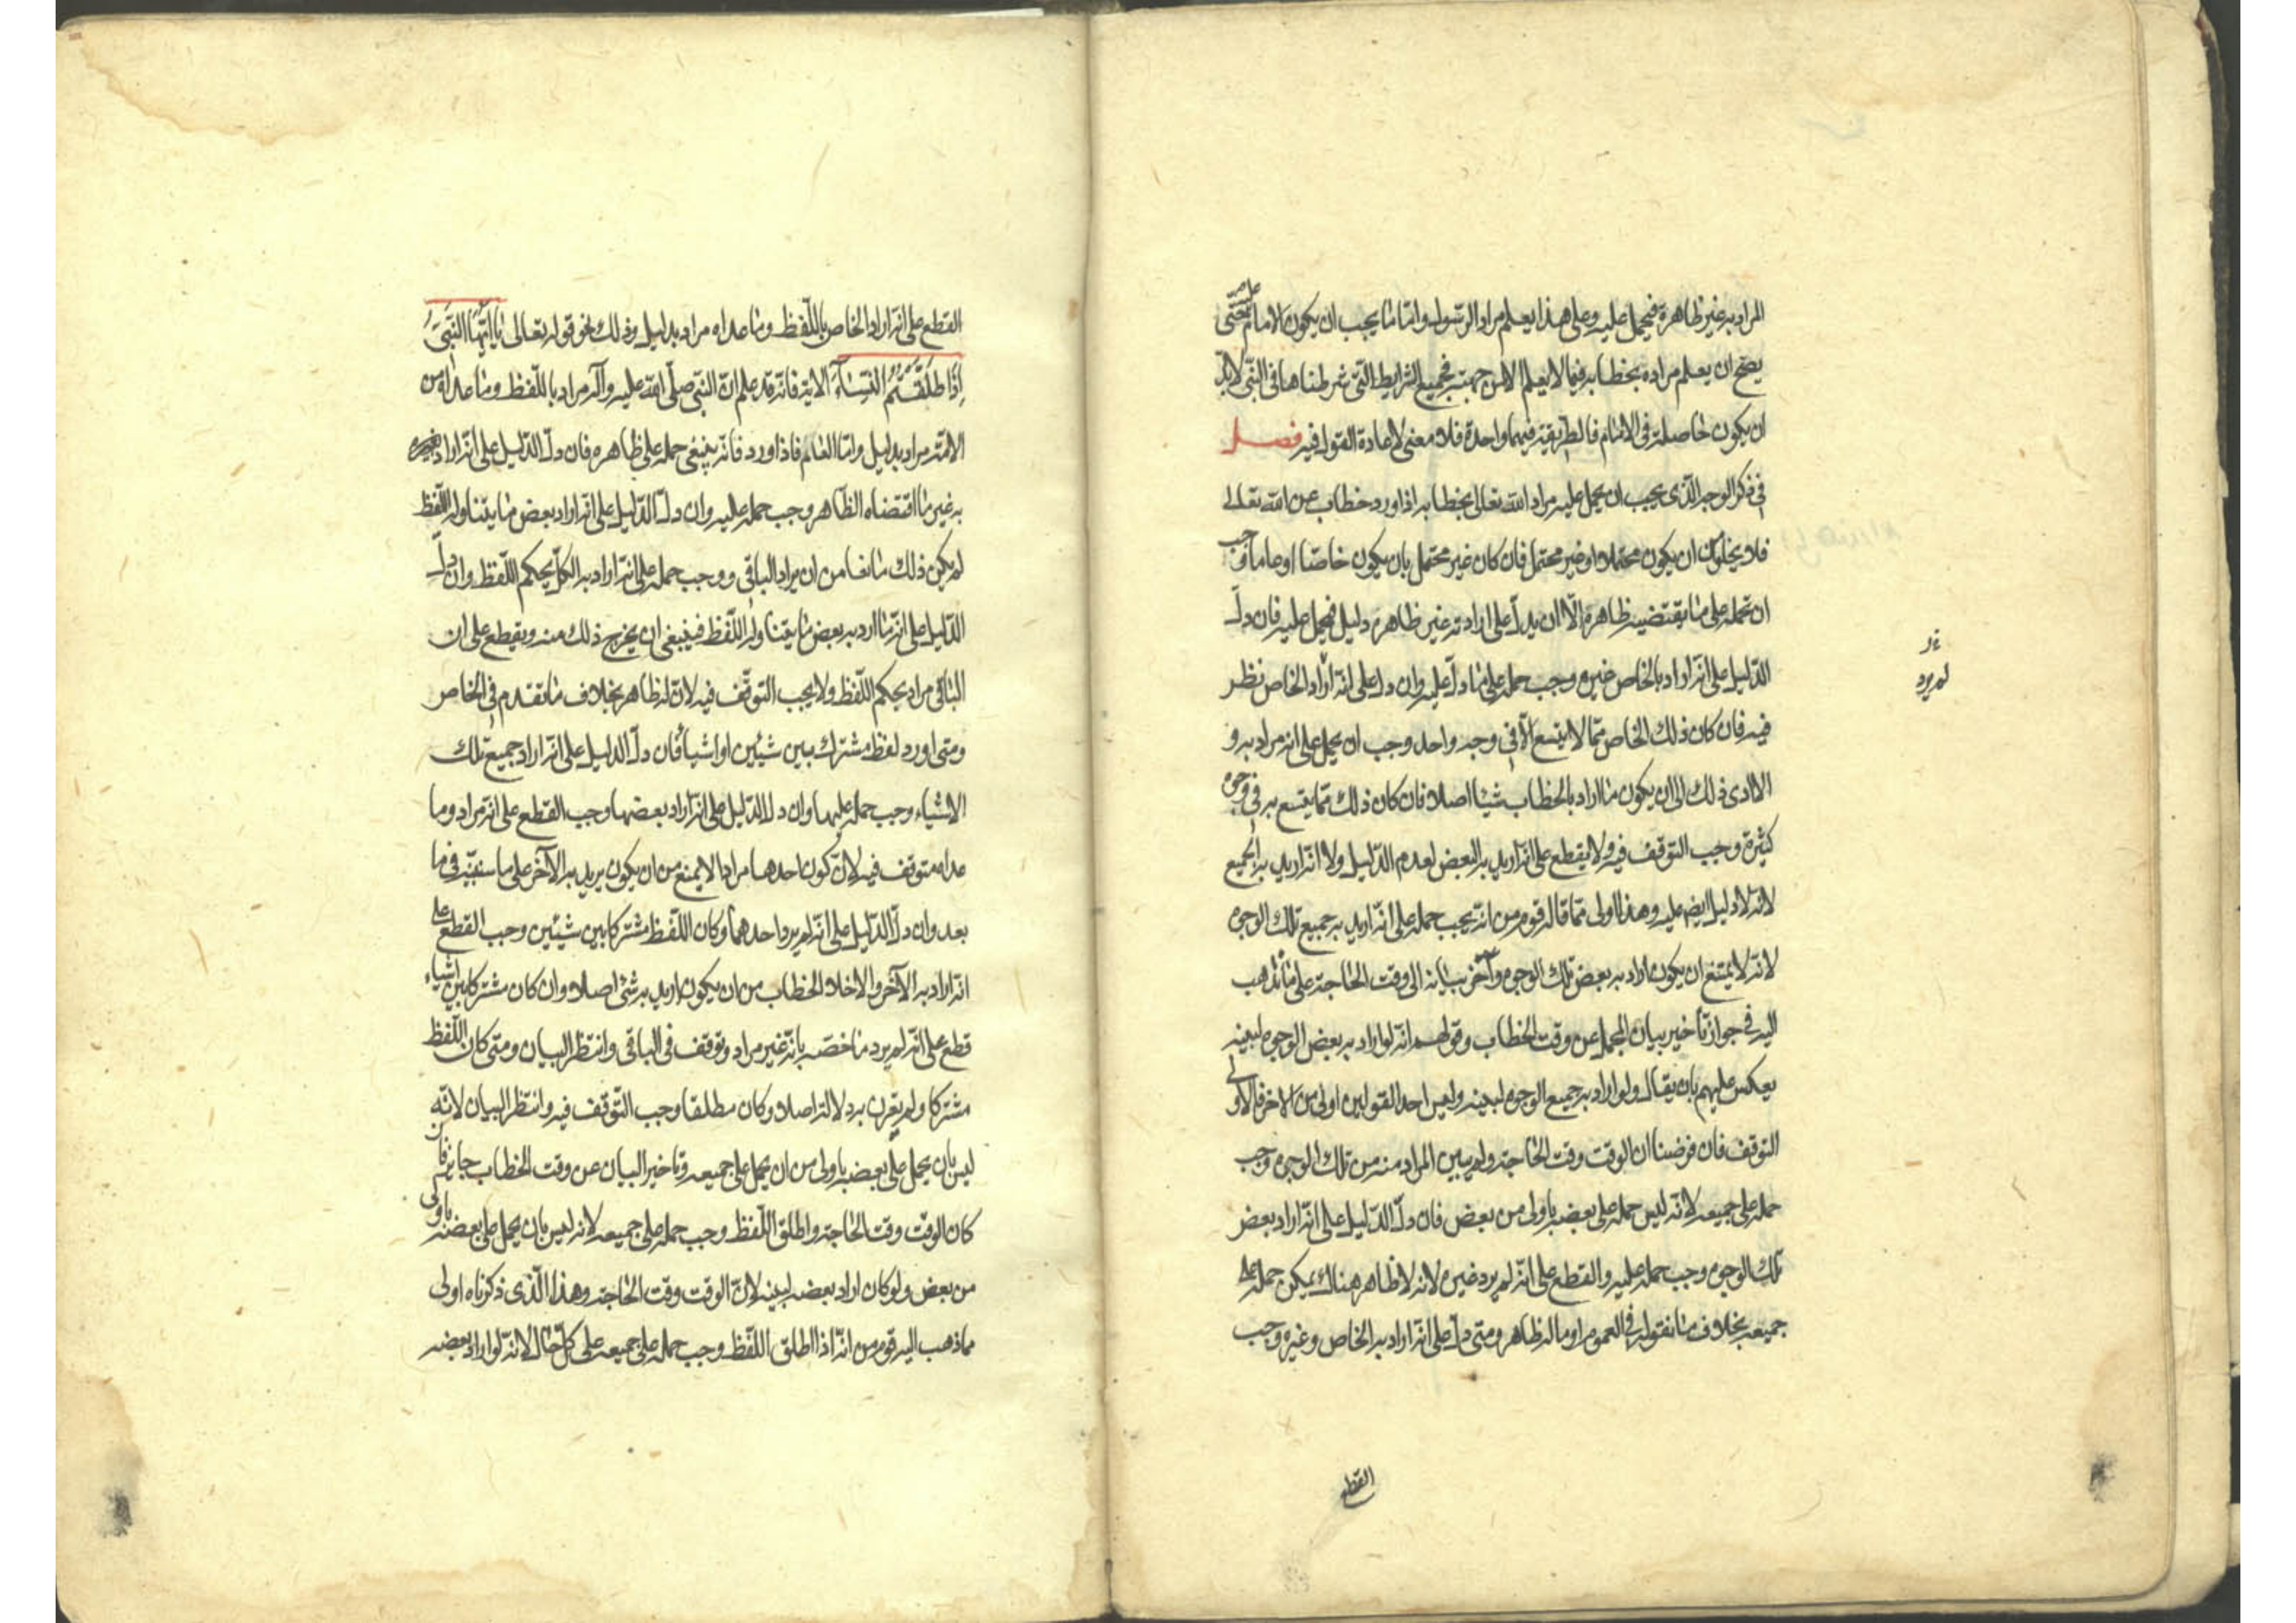 المراد به غير ظاهره فيحمل عليه وعلى هذا يعلم مراد الرسول وامّا ما يجب ان يكون الامام عليه حتّى
يصح ان يعلم مراده بخطابه فيما لا يعلم الا من جهته فجميع الشرايط التى شرطناها فى النّبى لابدّ
ان يكون حاصلة فى الامام فالطريقة فيهما واحدة فلا معنى لاعادة القول فيه فصل
فى ذكر الوجه الّذى يجب ان يحمل عليه مراد الله تعالى بخطابه اذا ورد خطاب عن الله تعالى
فلا يخلو من ان يكون محتملا او غير محتمل فان كان غير محتمل بان يكون خاصّا او عاما وجب
ان تحمله على ما يقتضيه ظاهره الّا ان يدلّ على ارادته غير ظاهره دليل فيحمل عليه فان دلّ
الدّليل على انّه اراد بالخاص غيره وجب حمله على ما دلّ عليه وان دل على انّه اراد الخاص نظر
فيه فان كان ذلك الخاص ممّا لا يتسع الّا فى وجه واحد وجب ان يحمل على انه مراد به و
الا ادى ذلك الى ان يكون ما اراد بالخطاب شيئا اصلا فان كان ذلك ممّا يتسع به فى وجوه
كثيرة وجب التوقف فيه ولا يقطع على انّه اريد به البعض لعدم الدّليل ولا انّه اريد به الجميع
لانه لا دليل ايضم عليه وهذا اولى ممّا قاله قوم من انّه يجب حمله على انّه اريد به جميع تلك الوجوه
لانّه لا يمتنع ان يكون اراد به بعض تلك الوجوه وأخّر بيانه الى وقت الحاجة على ما نذهب
اليه فى جواز تاخير بيان المجمل عن وقت الخطاب وقولهم انّه لو اراد به بعض الوجوه لبينه
يعكس عليهم بان يقال ولو اراد به جميع الوجوه لبينه وليس احد القولين اولى من الاخر فالاولى
التوقف فان فرضنا ان الوقت وقت الحاجة ولم يبين المراد منه من تلك الوجوه وجب
حمله على جميعه لانّه ليس حمله على بعضه باولى من بعض فان دلّ الدّليل على انّه اراد بعض
تلك الوجوه وجب حمله عليه والقطع على انّه لم يرد غيره لانه لا ظاهر هناك يمكن حمله على
جميعه بخلاف ما نقوله فى العموم او ماله ظاهر ومتى دلّ على انّه اراد به الخاص وغيره وجب
لم يرد
القطع
القطع على انّه اراد الخاص باللّفظ وما عداه مراد بدليل وذلك نحو قوله تعالى يَا أَيُّهَا النَّبِيُّ
إِذَا طَلَّقْتُمُ النِّسَاءَ الاية فانّه قد علم انّ النبّى صلّى الله عليه وآله مراد باللّفظ وما عداه من
الامّة مراد بدليل وامّا العام فاذا ورد فانّه ينبغى حمله على ظاهره فان دلّ الدّليل على انّه اراد
به غير ما اقتضاه الظّاهر وجب حمله عليه وان دلّ الدّليل على انّه اراد بعض ما يتناوله اللّفظ
لم يكن ذلك مانعا من ان يراد الباقى ووجب حمله على انّه اراد به الكلّ بحكم اللّفظ وان دلّ
الدّليل على انّه ما اراد به بعض ما يتناوله اللّفظ فينبغى ان يخرج ذلك منه ويقطع على ان
الباقى مراد بحكم اللّفظ ولا يجب التوقّف فيه لانّ له ظاهر بخلاف ما تقدم فى الخاص
ومتى اورد لفظ مشترك بين شيئين او اشيا فان دلّ الدليل على انّه اراد جميع تلك
الاشياء وجب حمله عليها وان دل الدّليل على انّه اراد بعضها وجب القطع على انّه مراد وما
عداه متوقف فيه لانّ كون احدها مرادا لا يمنع من ان يكون يريد به الآخر على ما سنبيّنه فى ما
بعد وان دلّ الدّليل على انّه لم يرد احدهما وكان اللّفظ مشتركا بين شيئين وجب القطع على
انّه اراد به الآخر والا خلا الخطاب من ان يكون اريد به شئ اصلا وان كان مشتركا بين اشياء
قطع على انّه لم يرد ما خصّه بانّه غير مراد وتوقف فى الباقى وانتظر البيان ومتى كان اللّفظ
مشتركا ولم يقرن به دلالة اصلا وكان مطلقا وجب التّوقّف فيه وانتظر البيان لانّه
ليس بان يحمل على بعضه باولى من ان يحمل على جميعه وتاخير البيان عن وقت الخطاب جايز فان
كان الوقت وقت الحاجة واطلق اللّفظ وجب حمله على جميعه لانه ليس بان يحمل على بعضه باولى
من بعض ولو كان اراد بعضه لبينه لانّ الوقت وقت الحاجة وهذا الّذى ذكرناه اولى
مما ذهب اليه قوم من انّه اذا اطلق اللّفظ وجب حمله على جميعه على كلّ حال لانّه لو اراد بعضه